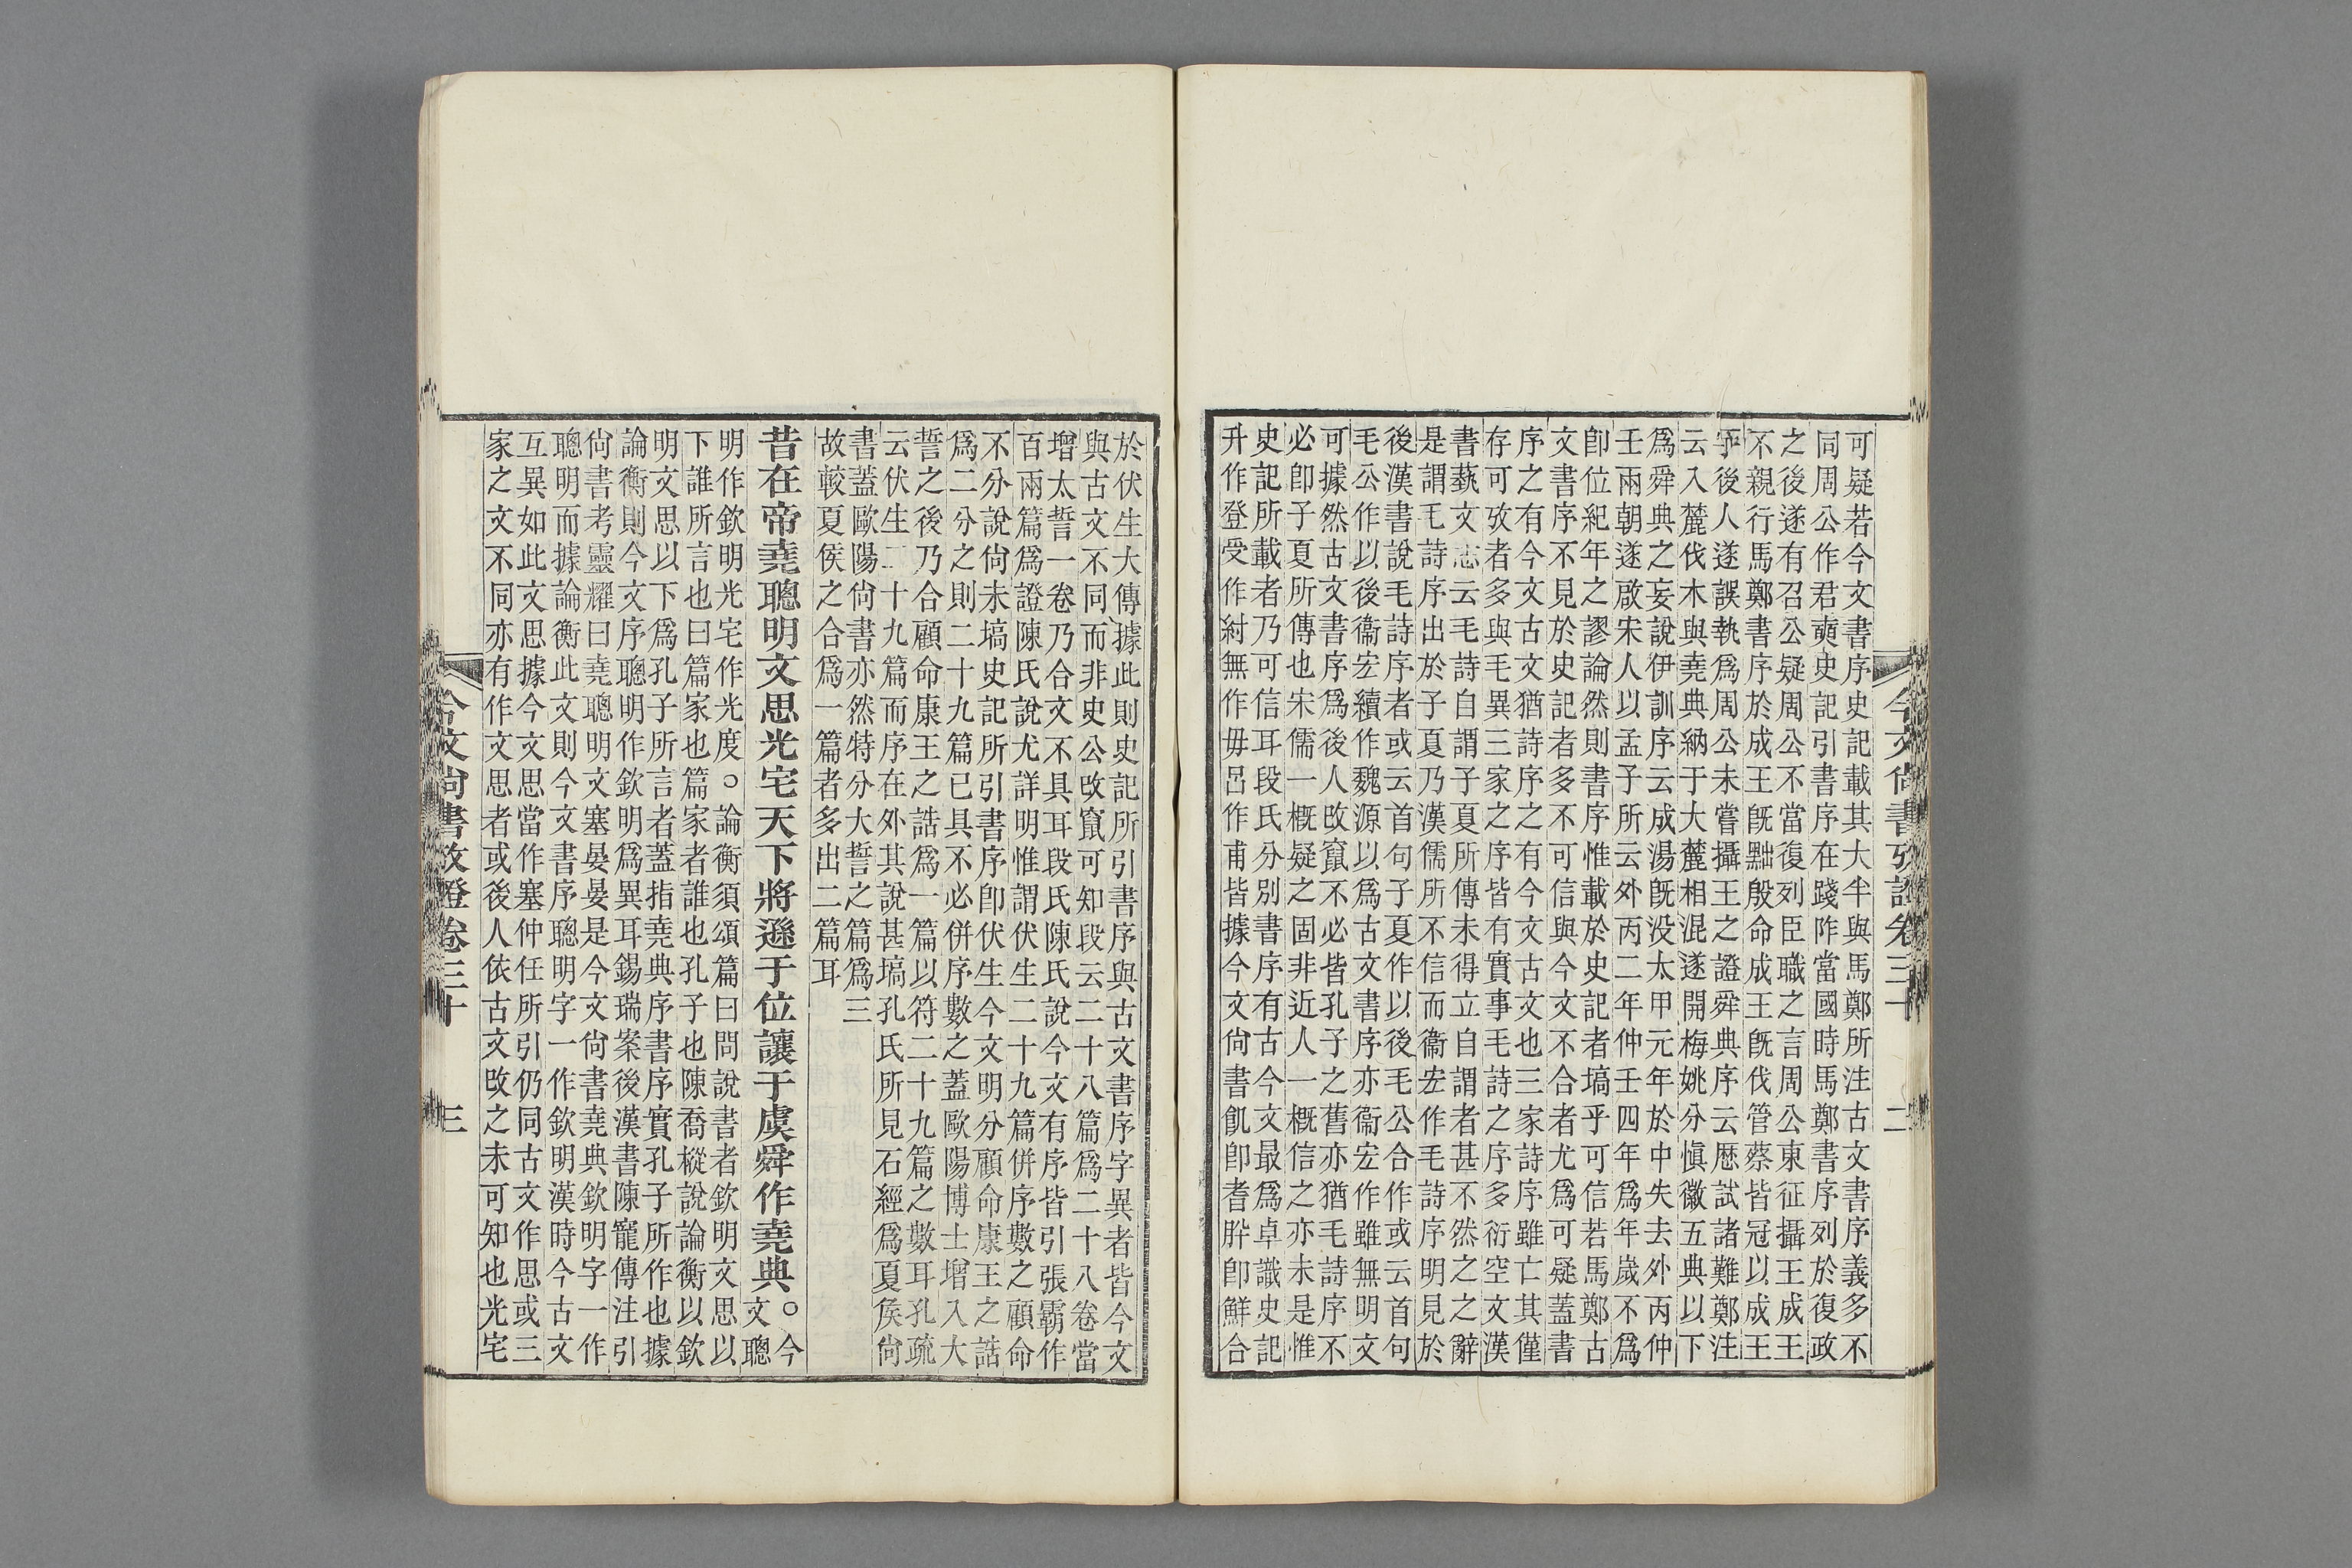 今文尚書攷證卷三十 二
可疑若今文書序史記載其大半與馬鄭所注古文書序義多不
同周公作君奭史記引書序在踐阼當國時馬鄭書序列於復政
之後遂有召公疑周公不當復列臣職之言周公東征攝王成王
不親行馬鄭書序於成王旣黜殷命成王旣伐管蔡皆冠以成王
字後人遂誤執爲周公未嘗攝王之證舜典序云歷試諸難鄭注
云入麓伐木與堯典納于大麓相混遂開梅姚分愼徽五典以下
爲舜典之妄說伊訓序云成湯旣没太甲元年於中失去外丙仲
壬兩朝遂啟宋人以孟子所云外丙二年仲壬四年爲年歲不爲
卽位紀年之謬論然則書序惟載於史記者塙乎可信若馬鄭古
文書序不見於史記者多不可信與今文不合者尤爲可疑蓋書
序之有今文古文猶詩序之有今文古文也三家詩序雖亡其僅
存可攷者多與毛異三家之序皆有實事毛詩之序多衍空文漢
書藝文志云毛詩自謂子夏所傳未得立自謂者甚不然之之辭
是謂毛詩序出於子夏乃漢儒所不信而衞宏作毛詩序明見於
後漢書說毛詩序者或云首句子夏作以後毛公合作或云首句
毛公作以後衞宏續作魏源以爲古文書序亦衞宏作雖無明文
可據然古文書序爲後人攺竄不必皆孔子之舊亦猶毛詩序不
必卽子夏所傳也宋儒一概疑之固非近人一概信之亦未是惟
史記所載者乃可信耳段氏分別書序有古今文最爲卓識史記
升作登受作紂無作毋呂作甫皆據今文尚書飢卽耆肸卽鮮合
於伏生大傳據此則史記所引書序與古文書序字異者皆今文
與古文不同而非史公攺竄可知段云二十八篇爲二十八卷當
增太誓一卷乃合文不具耳段氏陳氏說今文有序皆引張霸作
百兩篇爲證陳氏說尤詳明惟謂伏生二十九篇併序數之顧命
不分說尚未塙史記所引書序卽伏生今文明分顧命康王之誥
爲二分之則二十九篇已具不必併序數之蓋歐陽博士增入大
誓之後乃合顧命康王之誥爲一篇以符二十九篇之數耳孔疏
云伏生二十九篇而序在外其說甚塙孔氏所見石經爲夏侯尚
書蓋歐陽尚書亦然特分大誓之篇爲三
故較夏侯之合爲一篇者多出二篇耳
昔在帝堯聰明文思光宅天下將遜于位讓于虞舜作堯典。今
文聰
明作欽明光宅作光度。論衡須頌篇曰問說書者欽明文思以
下誰所言也曰篇家也篇家者誰也孔子也陳喬樅說論衡以欽
明文思以下爲孔子所言者蓋指堯典序書序實孔子所作也據
論衡則今文序聰明作欽明爲異耳錫瑞案後漢書陳寵傳注引
尚書考靈耀曰堯聰明文塞晏晏是今文尚書堯典欽明字一作
聰明而據論衡此文則今文書序聰明字一作欽明漢時今古文
互異如此文思據今文思當作塞仲任所引仍同古文作思或三
家之文不同亦有作文思者或後人依古文攺之未可知也光宅
今文尚書攷證卷三十 三